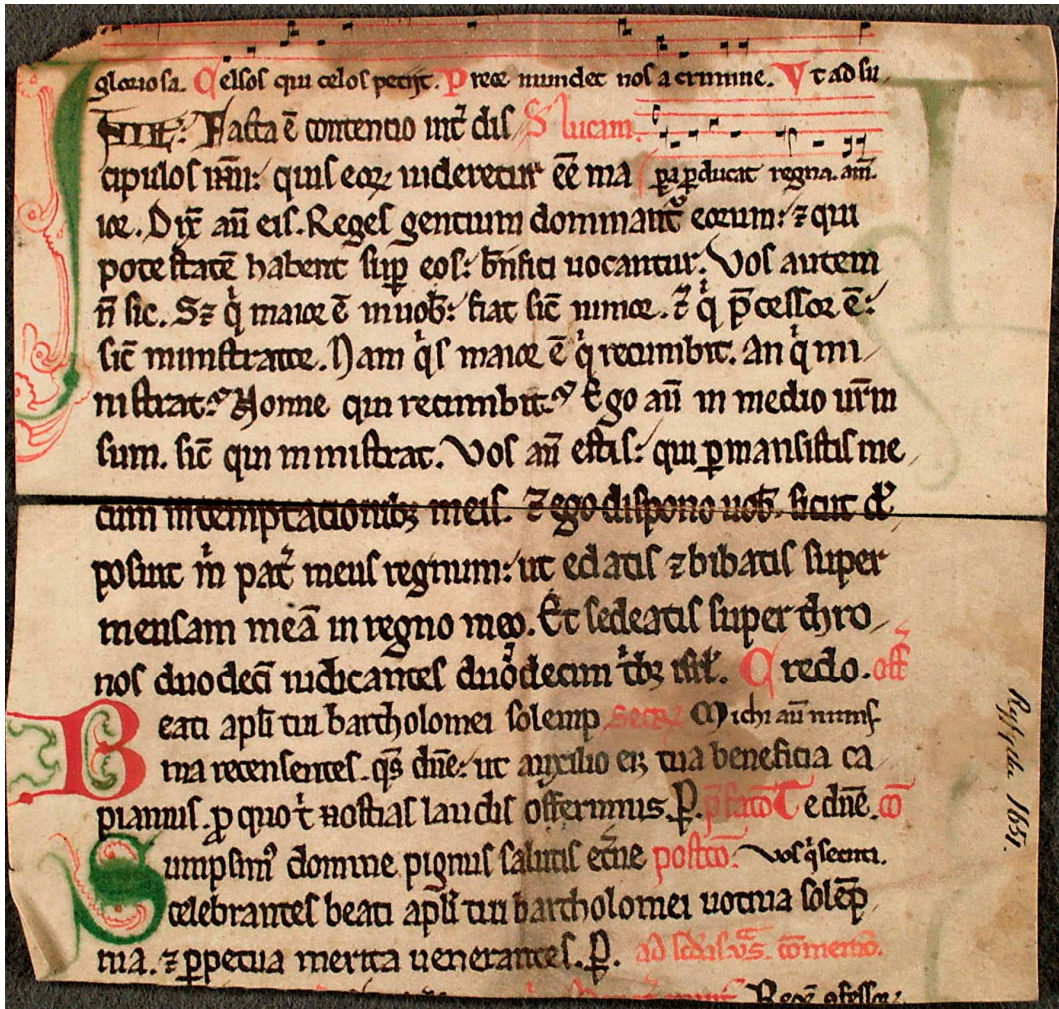 gloriosa. Celsos qui celos petijt. Prece mundet nos a crimine. Vt ad su/
ILLE: Facta ē contencio int̄ dis S lucam.
cipulos ih̄u: quis eoꝝ uideretur eē ma ꝑducat regna. am̄.
ior. Dix̄ aū eis. Reges gentium dominant̄ eorum: ⁊ qui
potestatē habent suꝑ eos: bn̄fici uocantur. Vos autem
n̄ sic. Sꝫ qͥ maior ē in uob̄: fiat sic̄ minor. ⁊ qͥ p̄cessor ē:
sic̄ ministrator. Nam qͥs maior ē qͥ recumbit. an qͥ mi/
nistrat? Nonne qui recumbit? Ego aū in medio ur̄m
sum. sic̄ qui ministrat. Vos aū estis: qui ꝑmansistis me/
cum in temptacionibꝫ meis. ⁊ ego dispono uob̄. sicut di/
posuit m̄ pat̄ meus regnum: ut edatis ⁊ bibatis super
mensam meā in regno meo. Et sedeatis super thro/
nos duodecī iudicantes duodecim tͥbꝫ isrl̄. Credo. off̄
Beati apl̄i tui bartholomei solemp secr̄ Michi aū nimis
nia recensentes. qs̄ dn̄e: ut auxilio eiꝰ tua beneficia ca
piamus. ꝓ quo t̄ hostias laudis offerimus. P. p̄facō Te dn̄e. cō
Sumpsimꝰ domine pignus salutis et̄ne postcō. Vos qͥ secuti.
celebrantes beati apl̄i tui bartholomei uotiua solēp/
nia. ⁊ ꝑpetua merita uenerantes. P.
Rystylde. 1651.